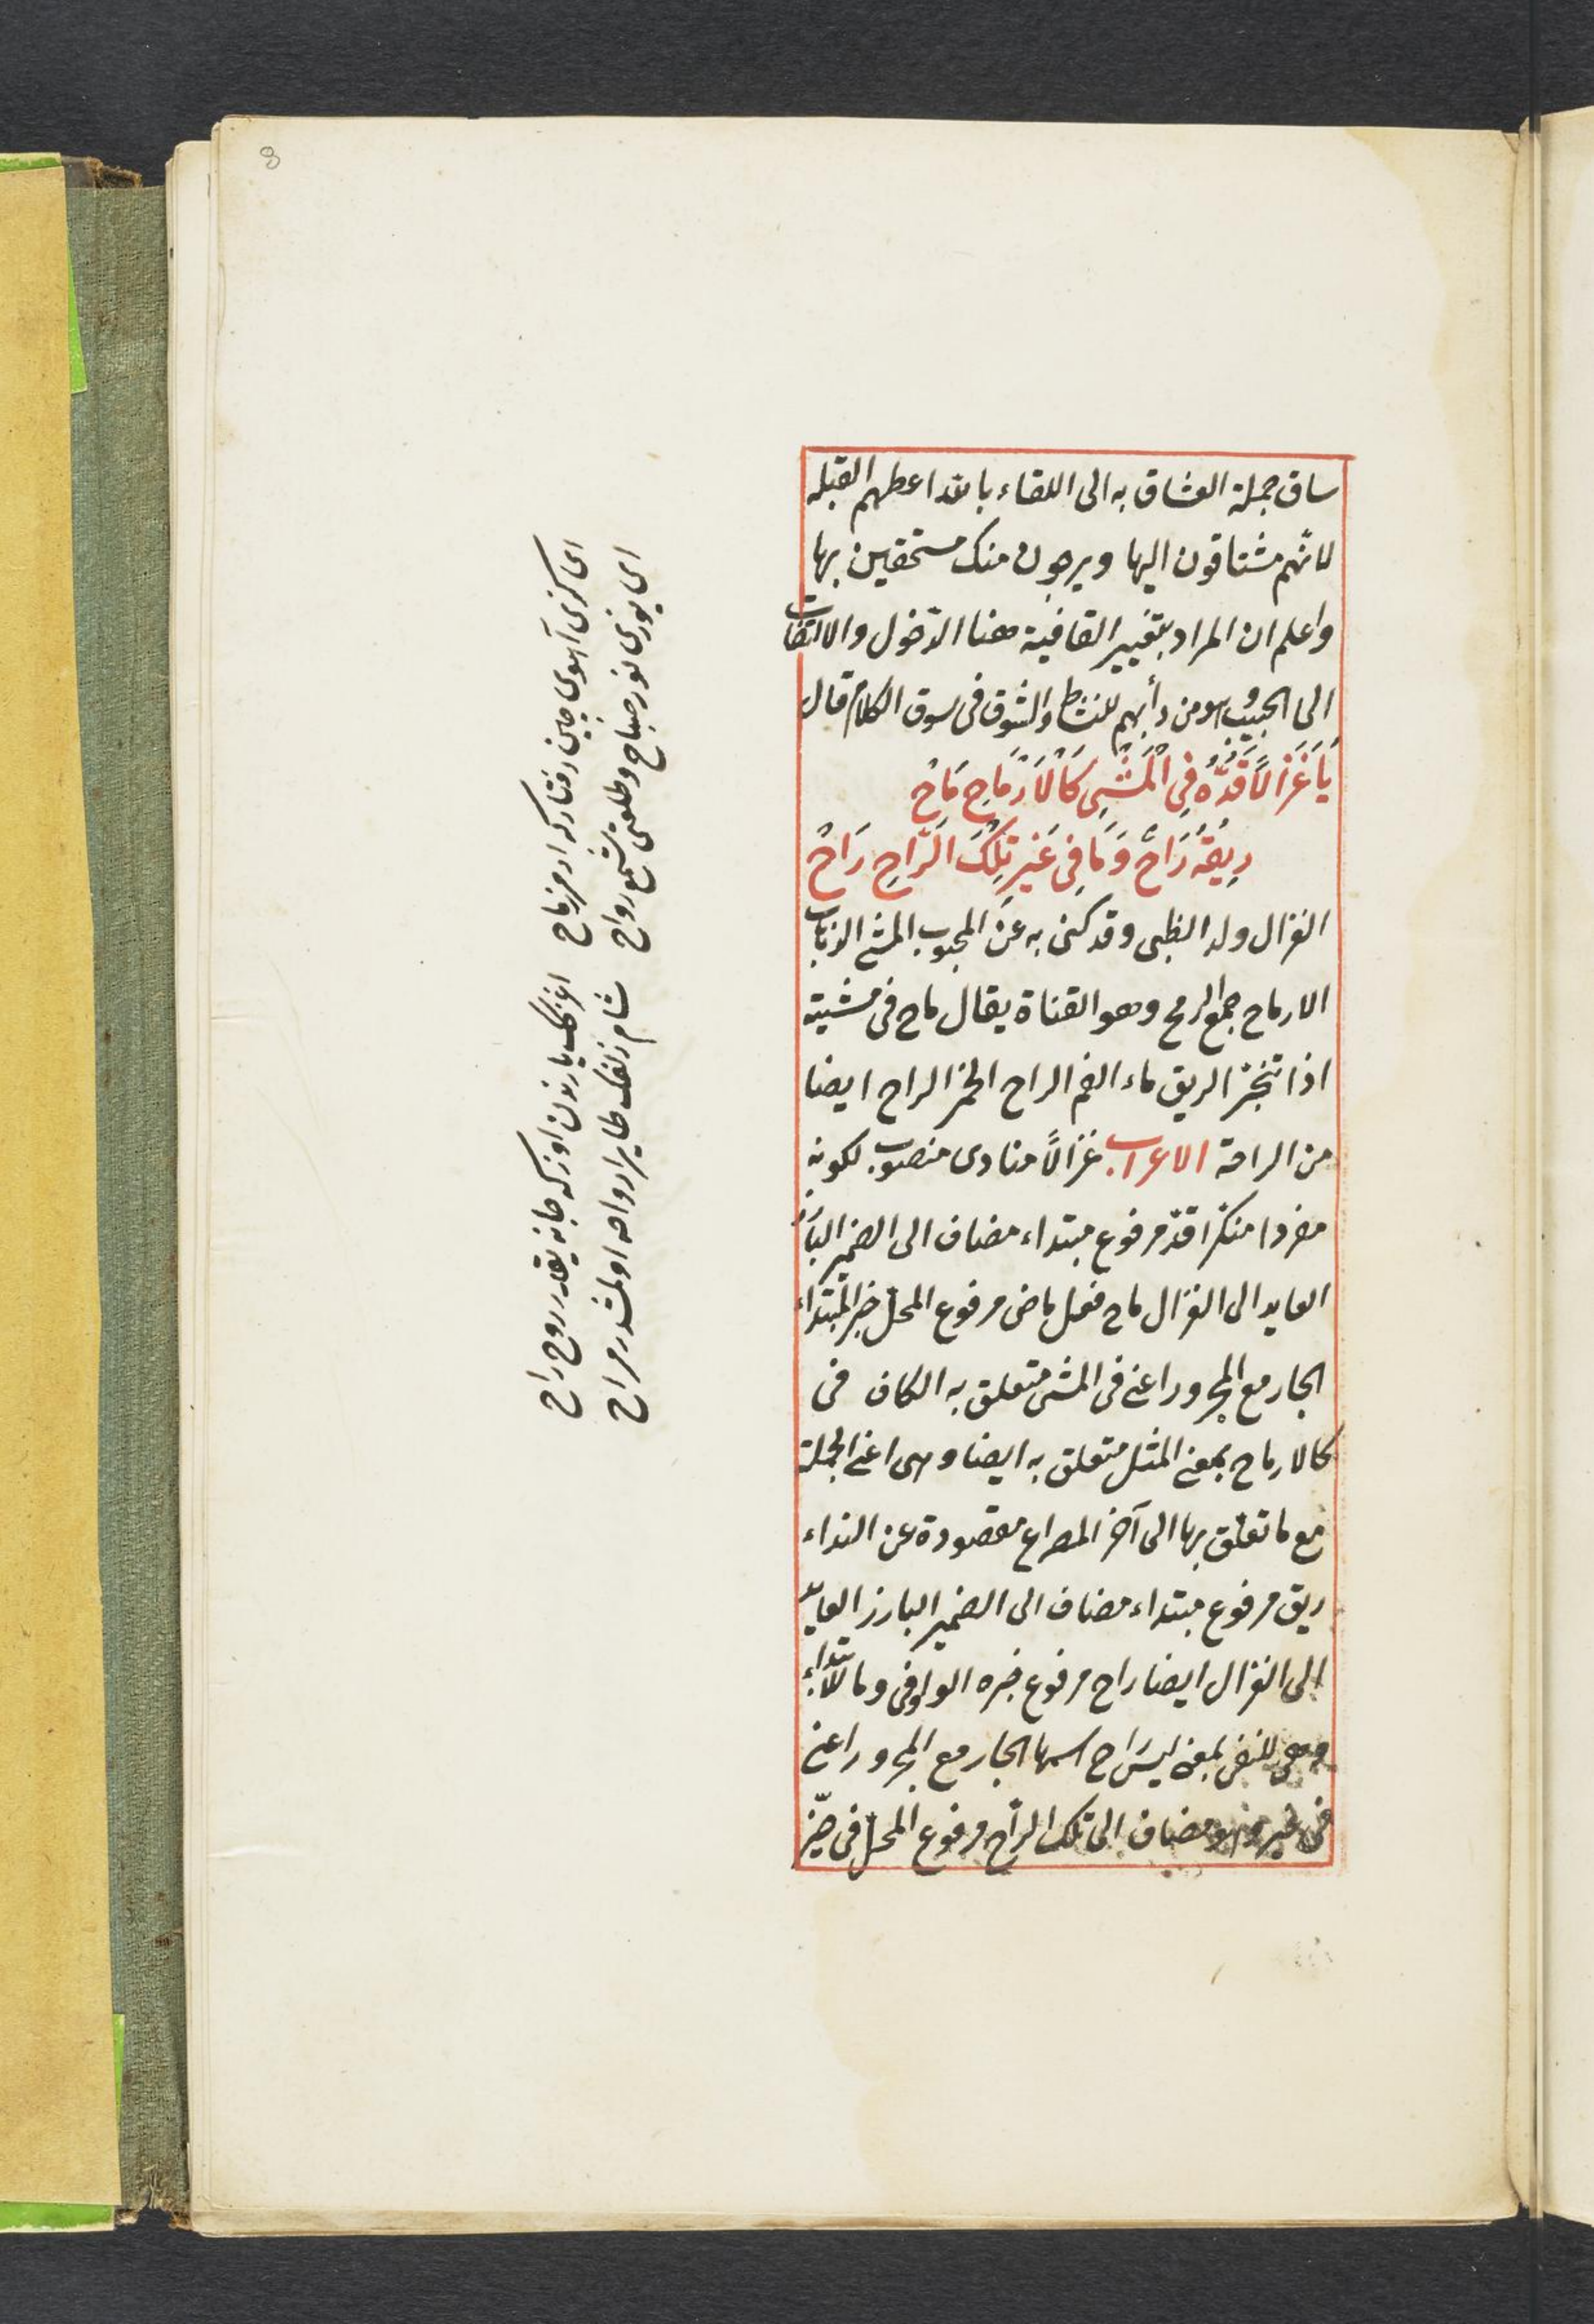 8
ساق جملة العشاق به الى اللقاء بالله اعطهم القبله
لانهم مشتاقون اليها ويرجون منك مستحقين بها
واعلم ان المراد بتغيير القافية هنا الدخول والالتفات
الى الحبيب وهو من دأبهم للنشاط والشوق فى سوق الكلام قال
يَا غَزَالًا قَدُّهُ فِى الْمَشْىِ كَالْاَرْمَاحِ مَاحْ
رِيقُهُ رَاحٌ وَمَا فِى غَيْرِ تِلْكَ الرَّاحِ رَاحْ
الغزال ولد الظبى وقد كنى به عن المحبوب المشى الذهاب
الارماح جمع الرمح وهو القناة يقال ماح فى مشيته
اذا تبختر الريق ماء الفم الراح الخمر الراح ايضا
من الراحة الاعراب غزالاً منادى منصوب لكونه
مفردا منكرا قدّ مرفوع مبتداء مضاف الى الضمير البارز
العايد الى الغزال ماح فعل ماض مرفوع المحل خبر المبتداء
الجار مع المجرور اعنى فى المشى متعلق به الكاف فى
كالارماح بمعنى المثل متعلق به ايضا وهى اعنى الجملة
مع ما تعلق بها الى آخر المصراع مقصودة عن النداء
ريق مرفوع مبتداء مضاف الى الضمير البارز العايد
الى الغزال ايضا راح مرفوع خبره الواو فى وما للابتداء
وهى للنفى بمعنى ليس راح اسمها الجار مع المجرور اعنى
فى غير وهو مضاف الى تلك الراح مرفوع المحل فى حيّز
اى كزى آهوى چين رفتارکه ارمز ماح
اغزک يارندن اوزکه جانه يقدر روح راح
اى يوزى نور صباح وطلعتى شمع رواح
شام زلفک طاير ارواحه اولمشدر مراح